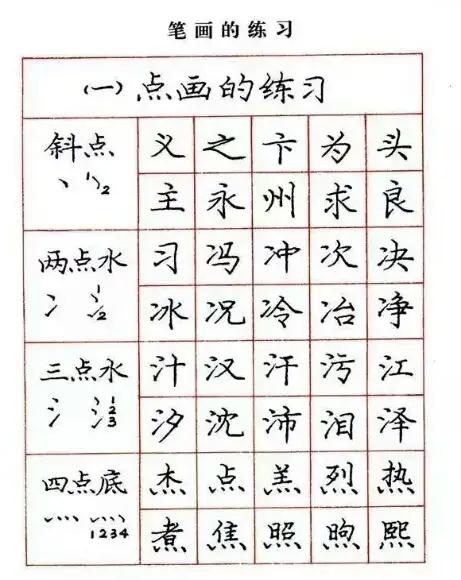 笔画的练习
(一)点画的练习
斜点 义 之 卞 为 头
丶 1 2 主 永 州 求 良
两点水 习 冯 冲 次 决
冫 1 2 冰 况 冷 冶 净
三点水 汁 汉 汗 污 江
氵 1 2 3 汐 沈 沛 泪 泽
四点底 杰 点 羔 烈 热
灬 1234 煮 焦 照 煦 熙